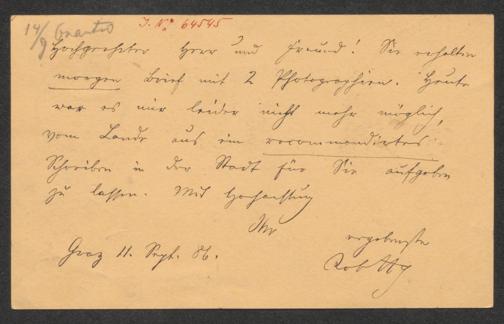 14/9 beantw
J. Nº 64545
Hochgeehrter Herr und Freund! Sie erhalten
morgen Brief mit 2 Photographien. Heute
war es mir leider nicht mehr möglich,
vom Lande aus ein recommandirtes
Schreiben in der Stadt für Sie aufgeben
zu lassen. Mit Hochachtung
Ihr
ergebenster
Graz 11. Sept. 86.